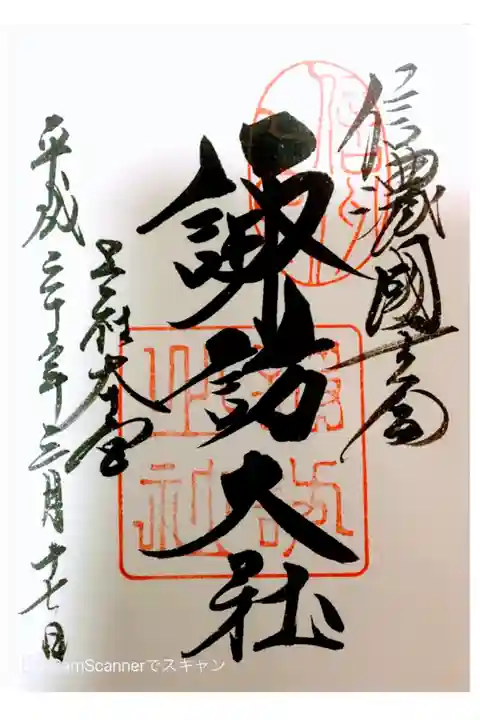 信濃國一之宮
諏訪大社
上社本宮
平成二十年三月十七日
CamScannerでスキャン